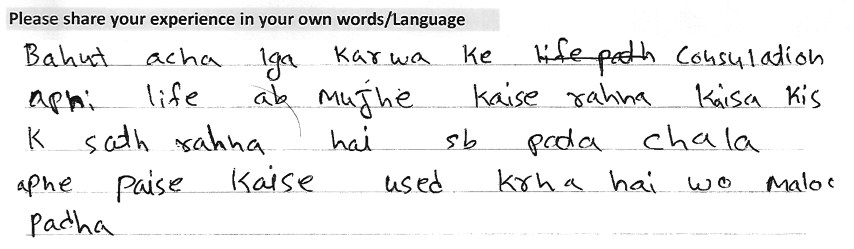 Please share your experience in your own words/Language
Bahut acha lga karwa ke life path Consulation
apni life ab mujhe kaise rahna kaisa kis
k sath rahna hai sb pada chala
apne paise kaise used krna hai wo maloc
padha